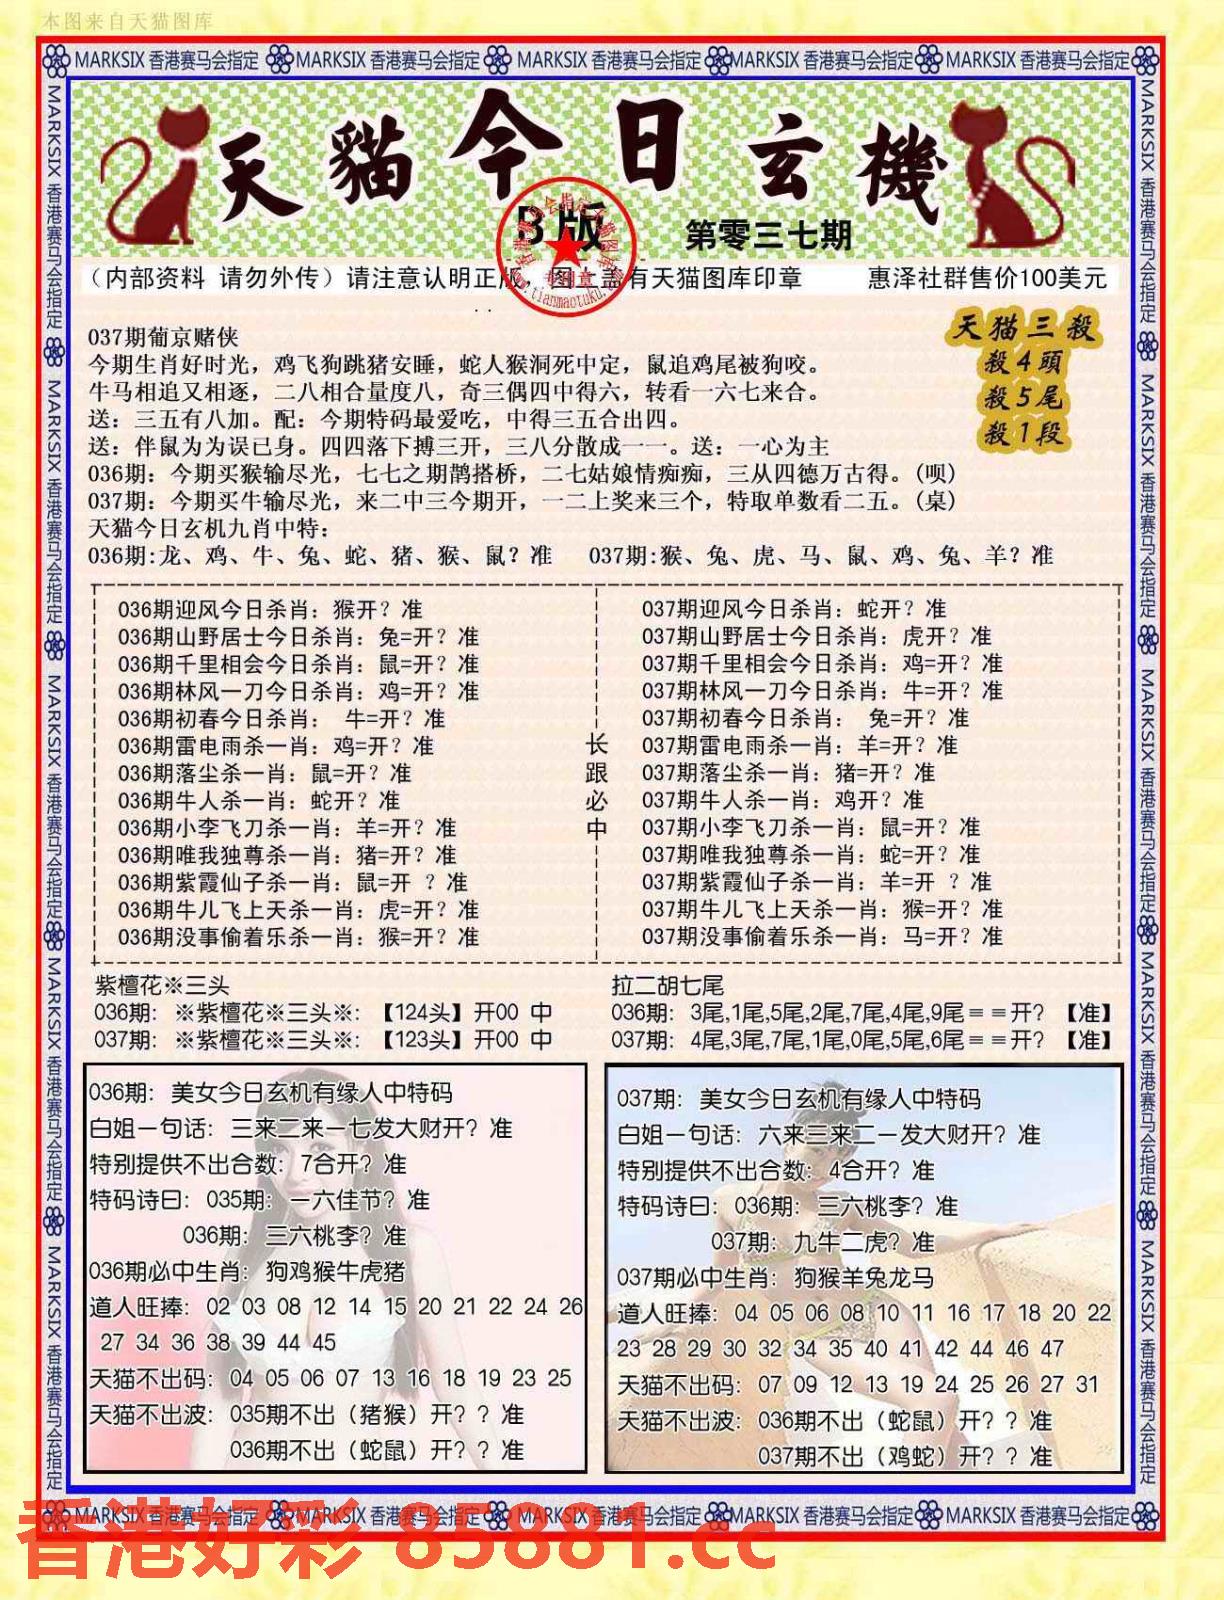 本图来自天猫图库
MARKSIX 香港赛马会指定 MARKSIX 香港赛马会指定 MARKSIX 香港赛马会指定 MARKSIX 香港赛马会指定 MARKSIX 香港赛马会指定
MARKSIX 香港赛马会指定 MARKSIX 香港赛马会指定 MARKSIX 香港赛马会指定 MARKSIX 香港赛马会指定 MARKSIX 香港赛马会指定
天貓今日玄機
B版
第零三七期
专用章
www.tianmaotuku.com
(内部资料 请勿外传)请注意认明正版 图上盖有天猫图库印章 惠泽社群售价100美元
天猫三殺
殺4頭
殺5尾
殺1段
037期葡京赌侠
今期生肖好时光，鸡飞狗跳猪安睡，蛇人猴洞死中定，鼠追鸡尾被狗咬。
牛马相追又相逐，二八相合量度八，奇三偶四中得六，转看一六七来合。
送：三五有八加。配：今期特码最爱吃，中得三五合出四。
送：伴鼠为为误已身。四四落下搏三开，三八分散成一一。送：一心为主
036期：今期买猴输尽光，七七之期鹊搭桥，二七姑娘情痴痴，三从四德万古得。(呗)
037期：今期买牛输尽光，来二中三今期开，一二上奖来三个，特取单数看二五。(桌)
天猫今日玄机九肖中特：
036期:龙、鸡、牛、兔、蛇、猪、猴、鼠？准 037期:猴、兔、虎、马、鼠、鸡、兔、羊？准
036期迎风今日杀肖：猴开？准
036期山野居士今日杀肖：兔=开？准
036期千里相会今日杀肖：鼠=开？准
036期林风一刀今日杀肖：鸡=开？准
036期初春今日杀肖： 牛=开？准
036期雷电雨杀一肖：鸡=开？准
036期落尘杀一肖：鼠=开？准
036期牛人杀一肖：蛇开？准
036期小李飞刀杀一肖：羊=开？准
036期唯我独尊杀一肖：猪=开？准
036期紫霞仙子杀一肖：鼠=开 ？准
036期牛儿飞上天杀一肖：虎=开？准
036期没事偷着乐杀一肖：猴=开？准
长
跟
必
中
037期迎风今日杀肖：蛇开？准
037期山野居士今日杀肖：虎开？准
037期千里相会今日杀肖：鸡=开？准
037期林风一刀今日杀肖：牛=开？准
037期初春今日杀肖： 兔=开？准
037期雷电雨杀一肖：羊=开？准
037期落尘杀一肖：猪=开？准
037期牛人杀一肖：鸡开？准
037期小李飞刀杀一肖：鼠=开？准
037期唯我独尊杀一肖：蛇=开？准
037期紫霞仙子杀一肖：羊=开 ？准
037期牛儿飞上天杀一肖：猴=开？准
037期没事偷着乐杀一肖：马=开？准
紫檀花※三头
036期：※紫檀花※三头※：【124头】开00 中
037期：※紫檀花※三头※：【123头】开00 中
拉二胡七尾
036期：3尾,1尾,5尾,2尾,7尾,4尾,9尾＝＝开？【准】
037期：4尾,3尾,7尾,1尾,0尾,5尾,6尾＝＝开？【准】
036期：美女今日玄机有缘人中特码
白姐一句话：三来二来一七发大财开？准
特别提供不出合数：7合开？准
特码诗曰：035期：一六佳节？准
036期：三六桃李？准
036期必中生肖：狗鸡猴牛虎猪
道人旺捧：02 03 08 12 14 15 20 21 22 24 26
27 34 36 38 39 44 45
天猫不出码：04 05 06 07 13 16 18 19 23 25
天猫不出波：035期不出（猪猴）开？？准
036期不出（蛇鼠）开？？准
037期：美女今日玄机有缘人中特码
白姐一句话：六来三来二一发大财开？准
特别提供不出合数：4合开？准
特码诗曰：036期：三六桃李？准
037期：九牛二虎？准
037期必中生肖：狗猴羊兔龙马
道人旺捧：04 05 06 08 10 11 16 17 18 20 22
23 28 29 30 32 34 35 40 41 42 44 46 47
天猫不出码：07 09 12 13 19 24 25 26 27 31
天猫不出波：036期不出（蛇鼠）开？？准
037期不出（鸡蛇）开？？准
MARKSIX 香港赛马会指定 MARKSIX 香港赛马会指定 MARKSIX 香港赛马会指定 MARKSIX 香港赛马会指定 MARKSIX 香港赛马会指定
MARKSIX 香港赛马会指定 MARKSIX 香港赛马会指定 MARKSIX 香港赛马会指定 MARKSIX 香港赛马会指定 MARKSIX 香港赛马会指定
香港好彩 85881.cc